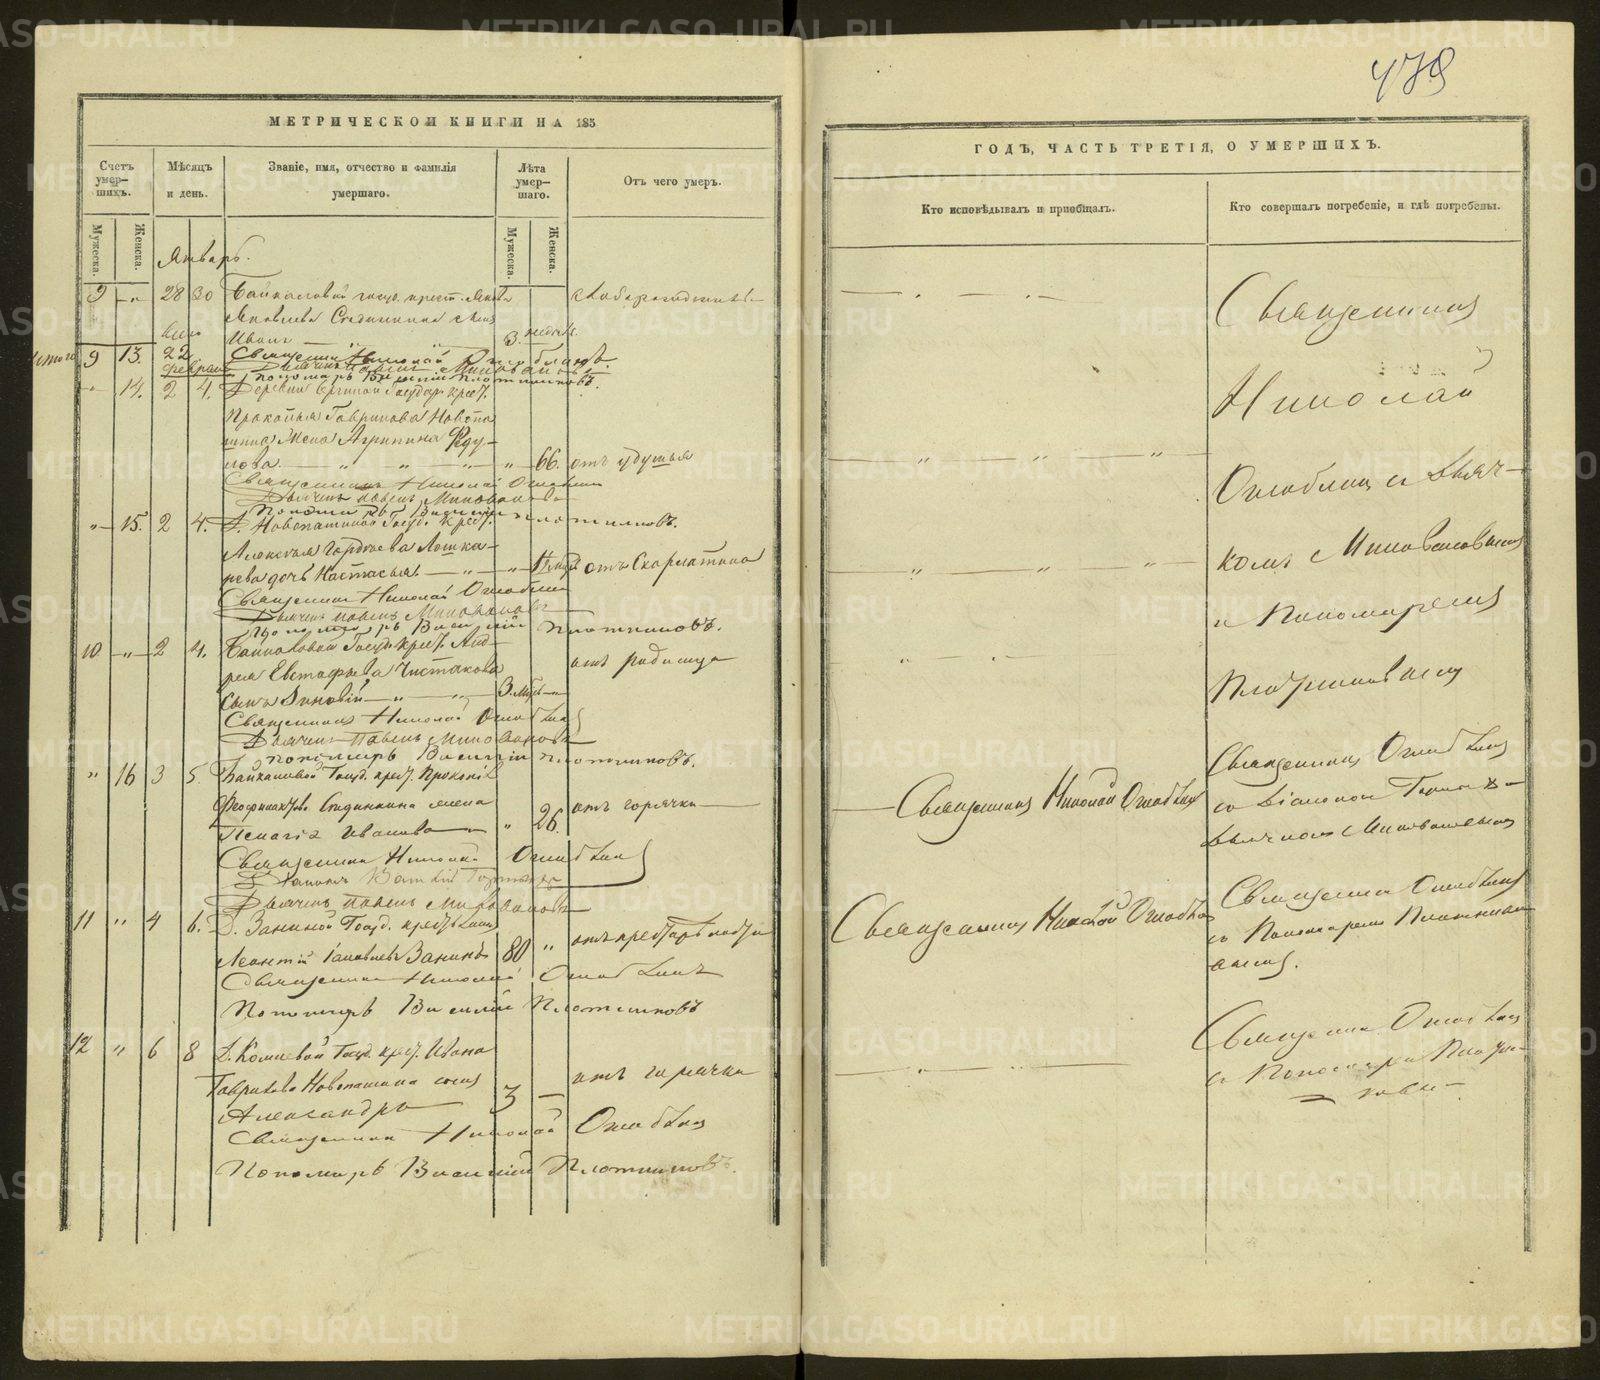 478
МЕТРИЧЕСКОЙ КНИГИ НА 185
Счетъ умер-шихъ.
Мѣсяцъ и день.
Званіе, имя, отчество и фамилія умершаго.
Лѣта умер-шаго.
Отъ чего умеръ.
Мужеска.
Женска.
Мужеска.
Женска.
Январь.
9 - „ 28 30 Байкаловой госуд. крест. Якова
Яковлева Спединкина сынъ
Иванъ 3. недѣл.
Итого 9 13. 22 Священникъ Николай Оглоблинъ
Февраль Дьячекъ Павелъ Миловановъ
Пономарь Василій Плотниковъ.
„ 14. 2 4. Деревни Государ. крест.
Прокопья Гаврилова Новопа
шина жена Агрипина Феду-
лова „ „ „ 66. отъ удушья
Священникъ Николай Оглоблин
Дьячекъ Павелъ Миловановъ
Пономарь Василій Плотниковъ.
„ 15. 2 4. Д. Новопашиной Госуд. крест.
Алексѣя Гордѣева Лошка-
рева дочь Настасья „ отъ Скарлатина
Священникъ Николай Оглоблин
Дьячекъ Павелъ Миловановъ
Пономарь Василій Плотниковъ.
10 „ 2 4. Байкаловой Госуд. крест. Анд-
рея Евстафьева Чистякова отъ родимца
сынъ Зиновій „ „ 3. мѣс.
Священникъ Николай Оглоблинъ
Дьячекъ Павелъ Миловановъ
Пономарь Василій Плотниковъ.
„ 16 3 5. Байкаловой Госуд. крест. Прокопія
Феофилактова Спединкина жена отъ горячки
Пелагія Иванова „ 26.
Священникъ Николай Оглоблин
Діаконъ
Дьячекъ Павелъ Миловановъ
11 „ 4 6. Д. Заниной Госуд. крестьянинъ
Леонтій Яковлевъ Занинъ 80 „ отъ престарѣлости
Священникъ Николай Оглоблинъ
Пономарь Василій Плотниковъ
12 „ 6 8 Д. Комлевой Госуд. крест. Ивана
Гаврилова Новопашина сынъ отъ горячки
Александръ 3 —
Священникъ Николай Оглоблинъ
Пономарь Василій Плотниковъ.
ГОДЪ, ЧАСТЬ ТРЕТІЯ, О УМЕРШИХЪ.
Кто исповѣдывалъ и приобщалъ.
Кто совершалъ погребеніе, и гдѣ погребены.
Священникъ
Николай
Оглоблинъ съ дьяч-
комъ Миловановымъ
и Пономаремъ
Плотниковымъ
Священникъ Николай Оглоблинъ
Священникъ Оглоблинъ
съ Діакономъ
дьячкомъ Миловановымъ
Священникъ Николай Оглоблинъ
Священникъ Оглоблинъ
съ Пономаремъ Плотнико
вымъ.
Священникъ Оглоблинъ
съ Пономарем Плотни-
ковы
METRIKI.GASO-URAL.RU